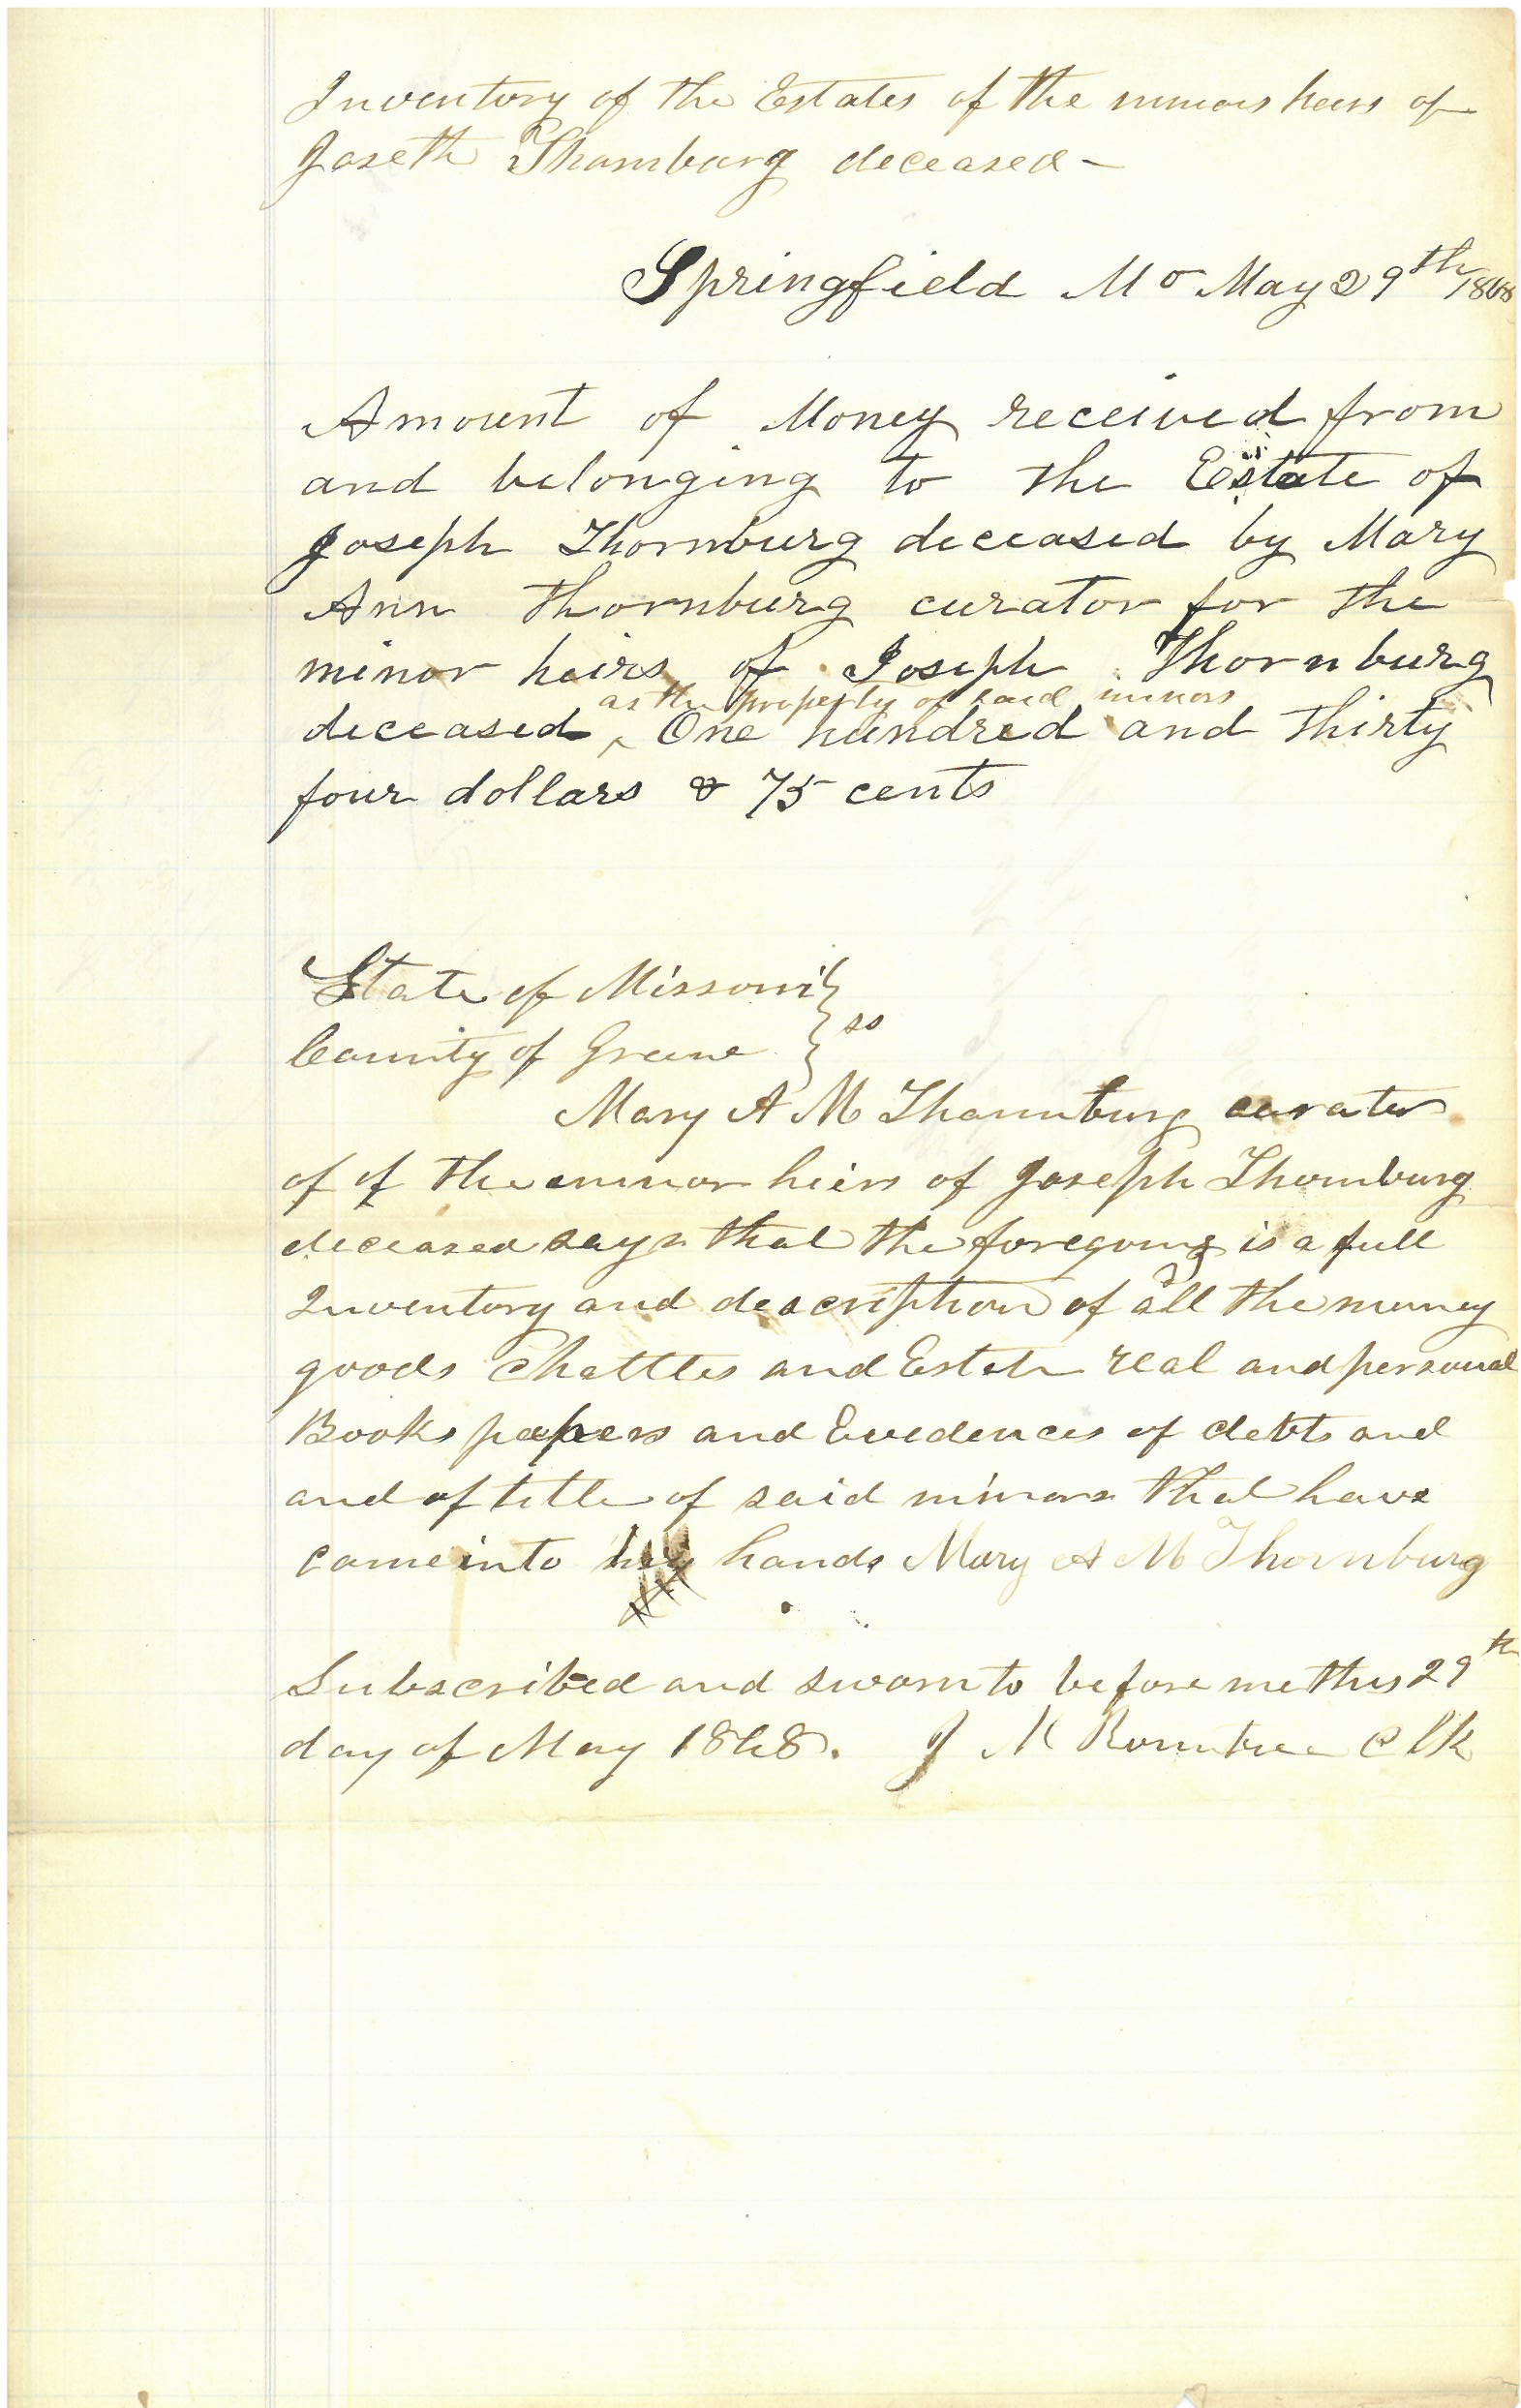 Inventory of the Estates of the minors heirs of
Joseth Thornburg deceased —
Springfield Mo May 29th 1868
Amount of Money received from
and belonging to the Estate of
Joseph Thornburg deceased by Mary
Ann Thornburg curator for the
minor heirs of Joseph Thornburg
as the property of said minors
deceased ^ One hundred and thirty
four dollars & 75 cents
State of Missouri }
County of Greene } ss
Mary A M Thornburg curator
of of the minor heirs of Joseph Thornburg
deceased says that the foregoing is a full
Inventory and description of all the money
goods Chattles and Estate real and personal
Books papers and Evidences of debts and
and of title of said minors that have
come into her hands Mary A M Thornburg
Subscribed and sworn to before me this 29th
day of May 1868. J K Rountree Clk